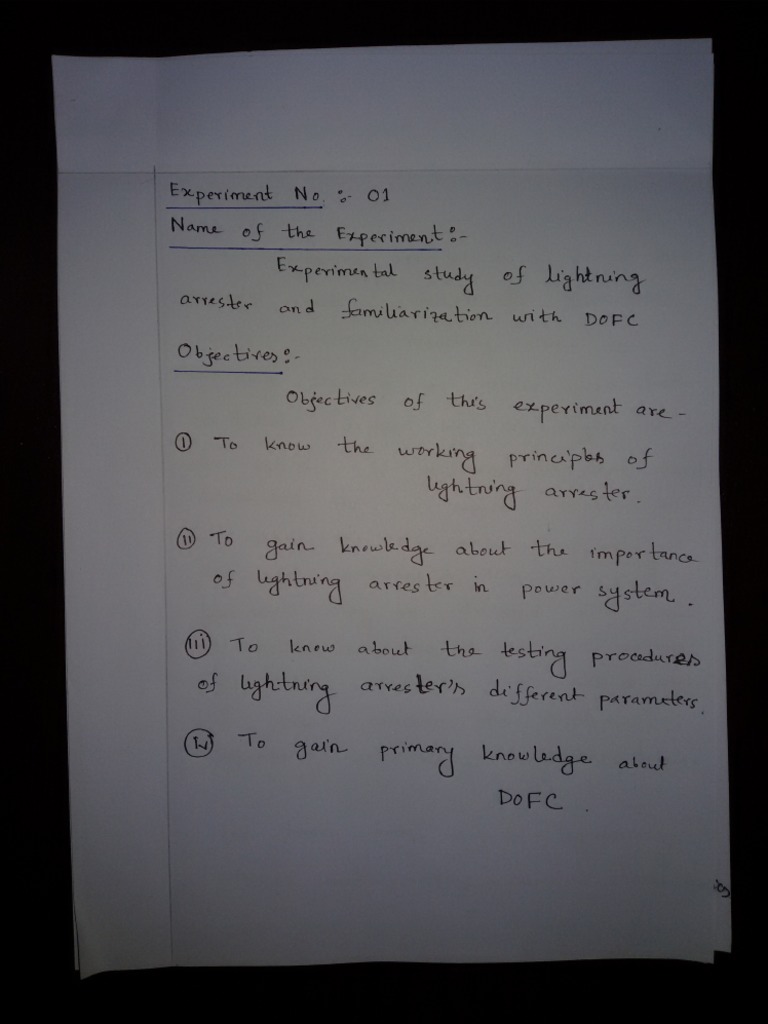 Experiment No. :- 01
Name of the Experiment :-
Experimental study of lightning
arrester and familiarization with DOFC
Objectives :-
Objectives of this experiment are -
(i) To know the working principles of
lightning arrester.
(ii) To gain knowledge about the importance
of lightning arrester in power system.
(iii) To know about the testing procedures
of lightning arrester's different parameters.
(iv) To gain primary knowledge about
DOFC.